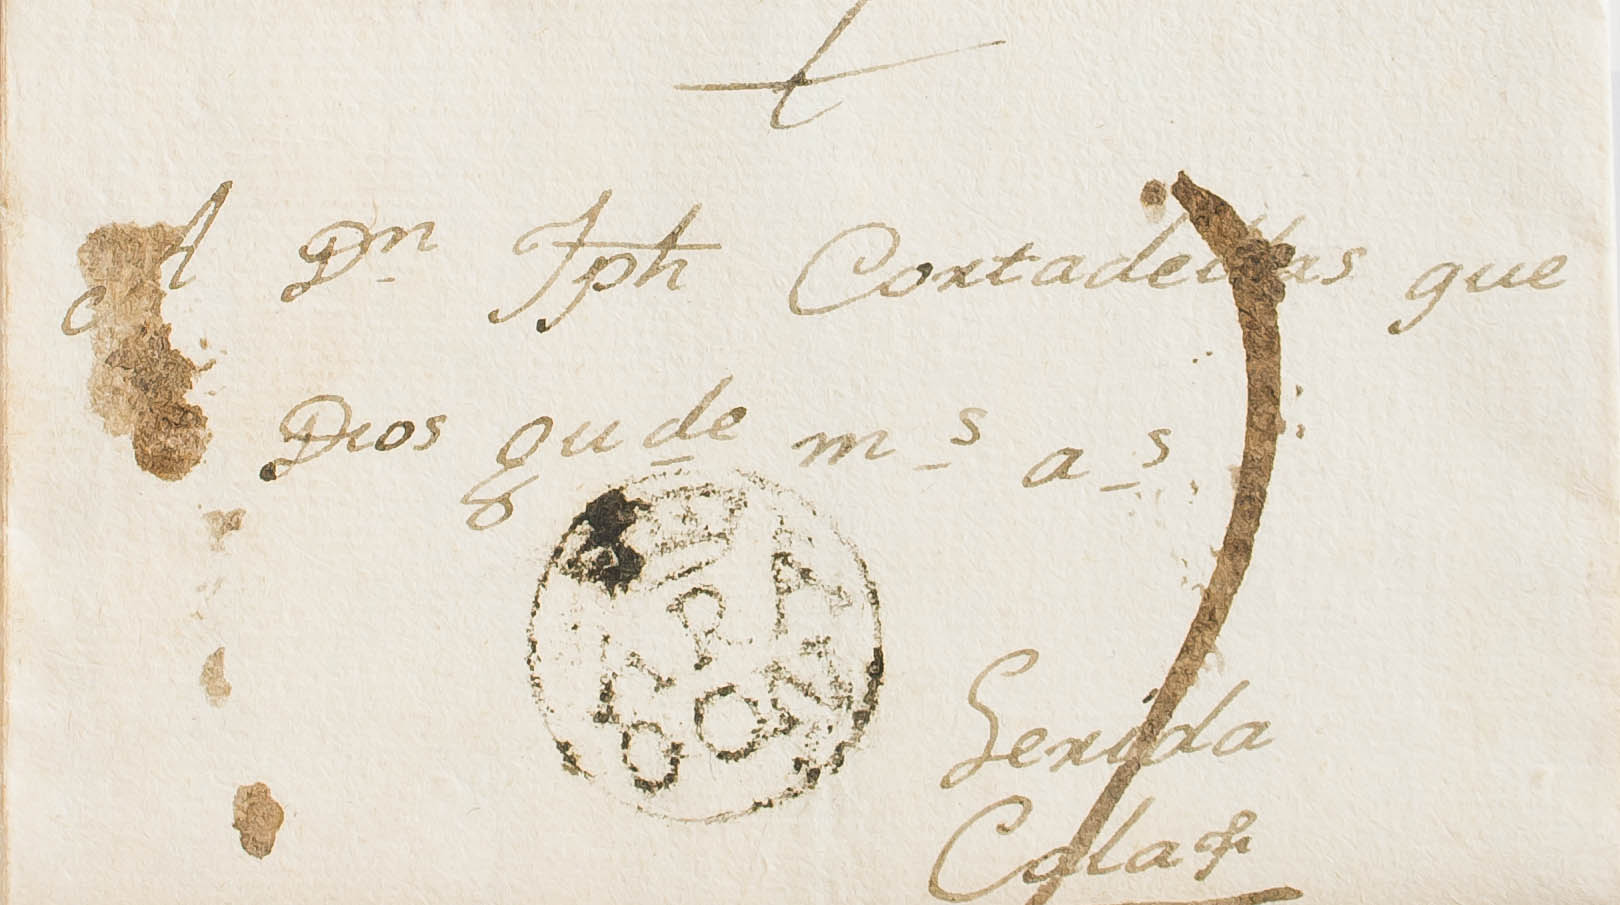 A Dn Jph Cortadellas que
Dios gude ms as
ARA
GON
Lerida
Cala